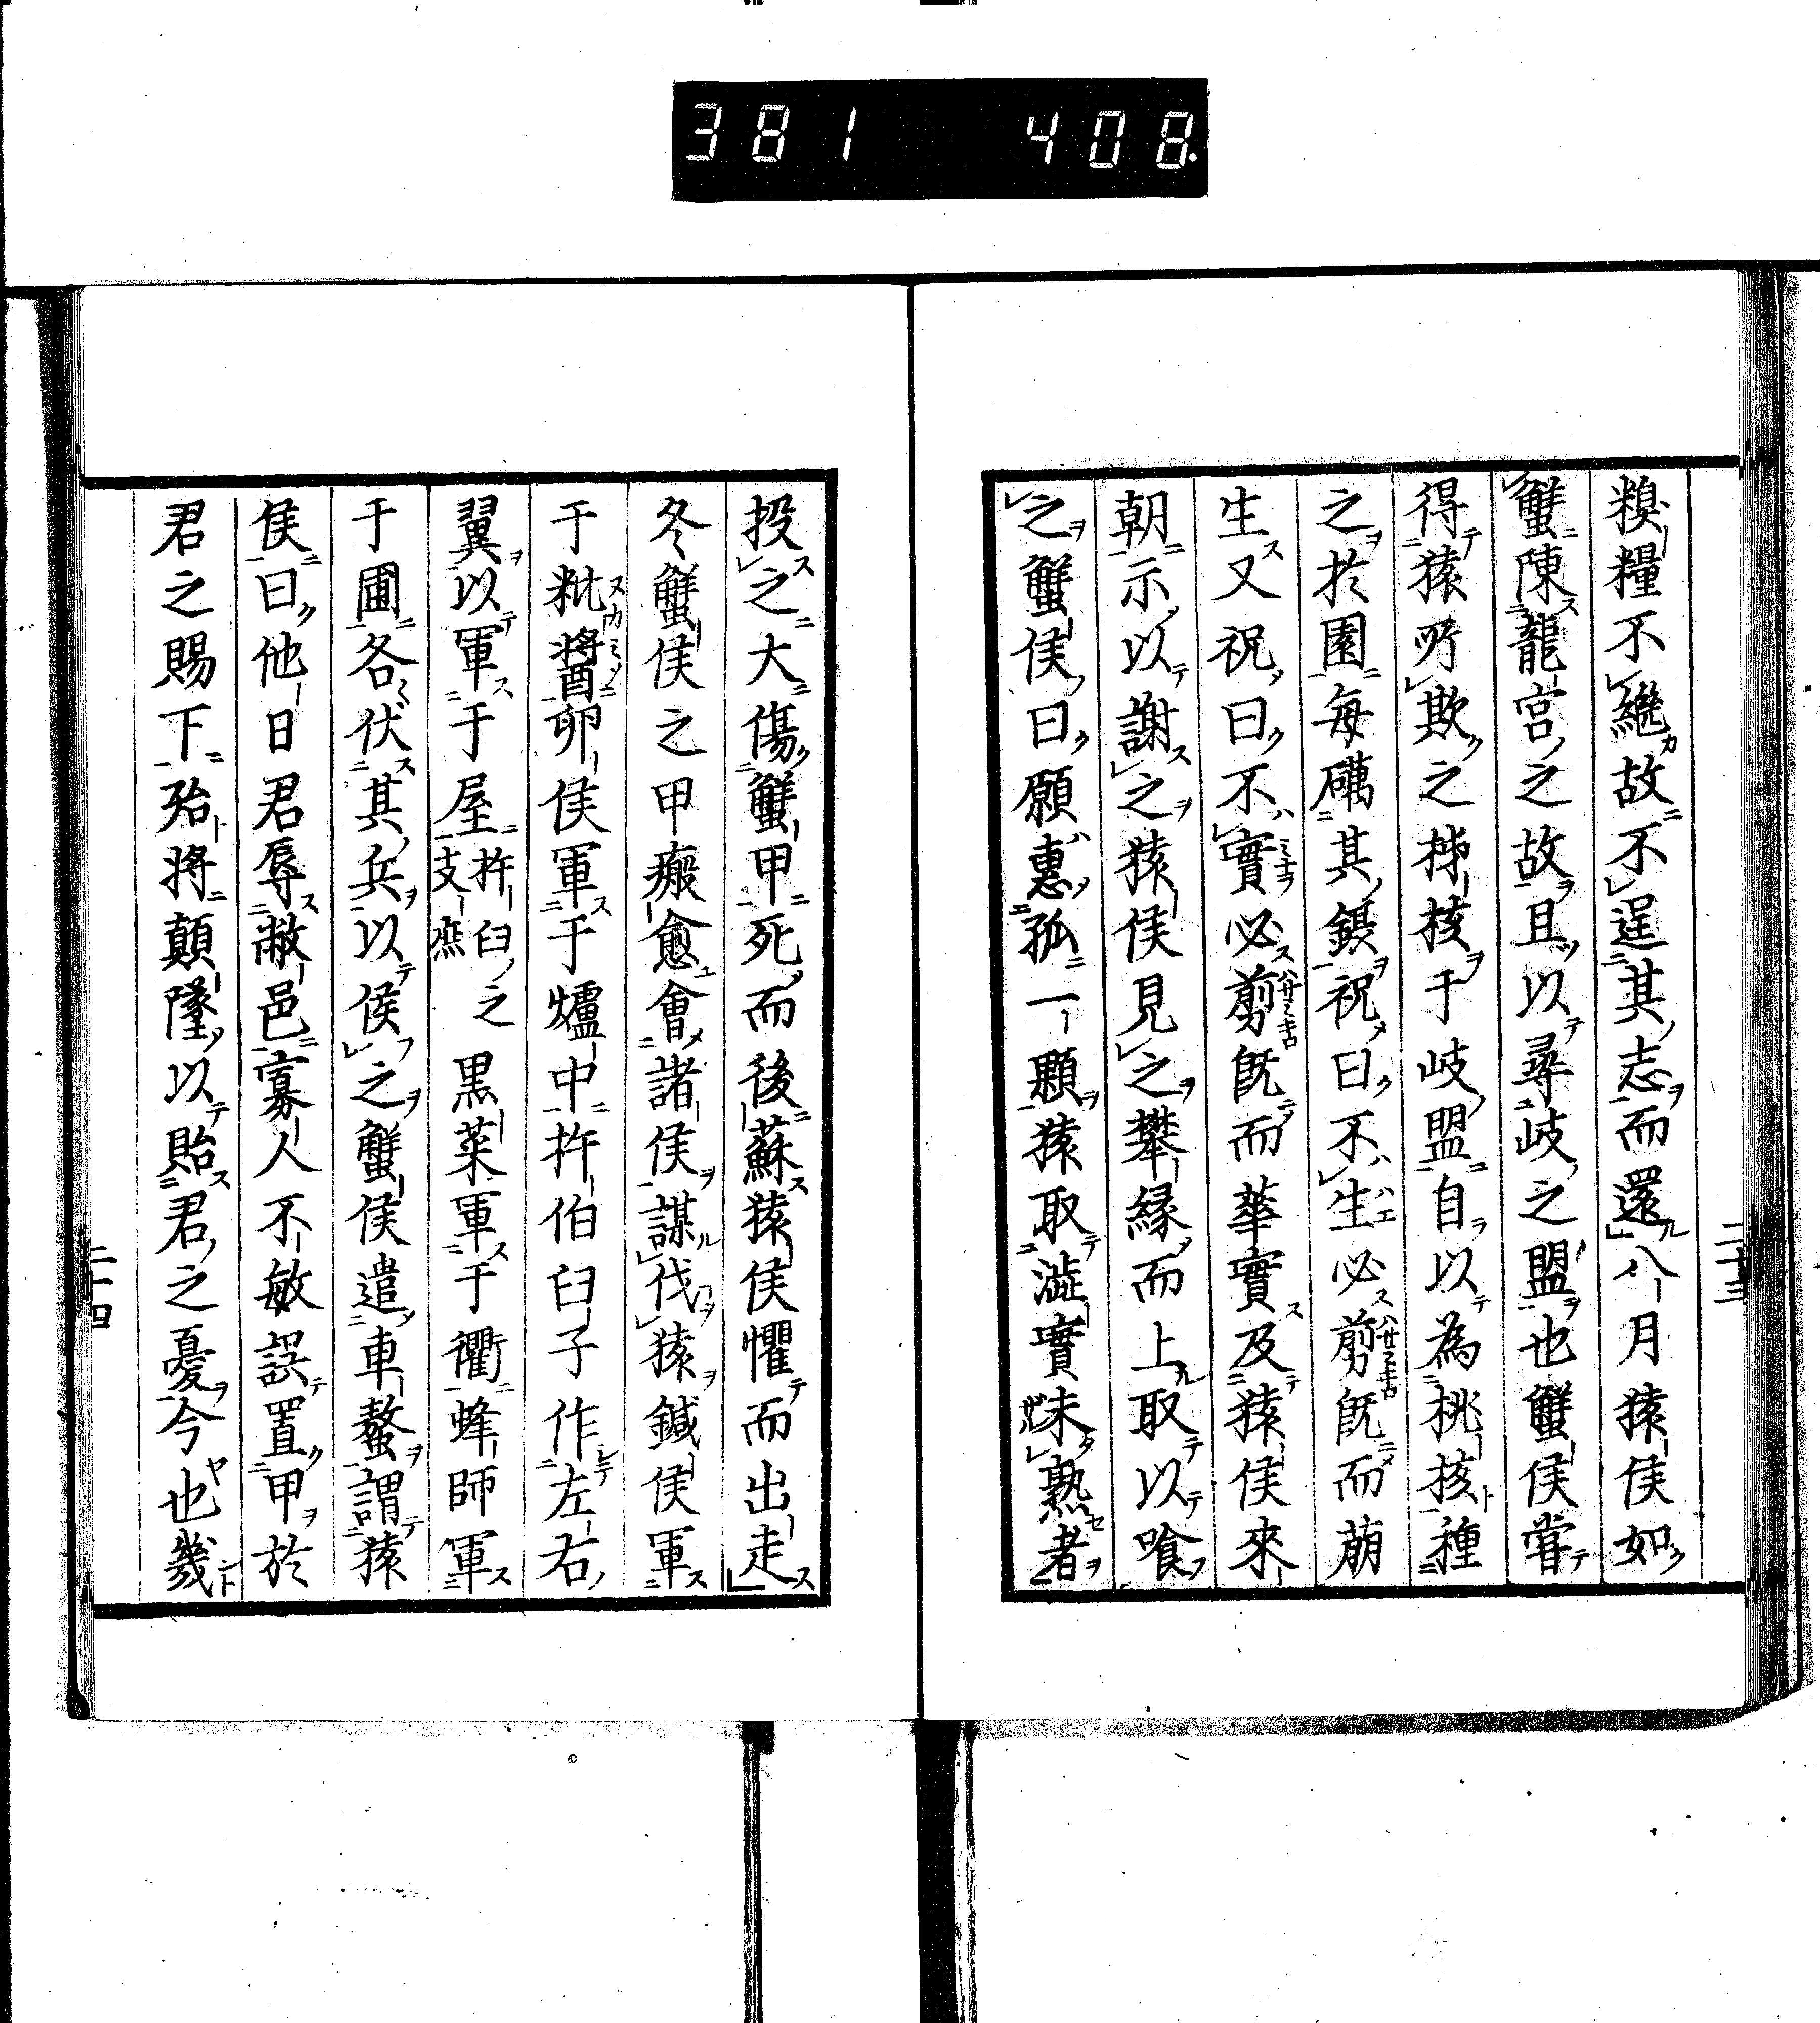 381 408
糗糧不繼故不逞其志而還八月猿侯如
蟹陳龍宮之故且以尋岐之盟也蟹侯嘗
得猿所欺之柹核于岐盟自以為桃核種
之於園每礪其鋏祝曰不生必剪既而萠
生又祝曰不實必剪既而華實及猿侯來
朝示以謝之猿侯見之攀縁而上取以喰
之蟹侯曰願惠孤一顆猿取澁實味熟者
二十三
投之大傷蟹甲死而後蘇猿侯懼而出走
冬蟹侯之甲瘢愈會諸侯謀伐猿鍼侯軍
于粃醬卵侯軍于爐中杵伯臼子作左右
翼以軍于屋杵臼之支黑菜軍于衢蜂師軍
于圃各伏其兵以侯之蟹侯遣車螯謂猿
侯曰他日君辱敝邑寡人不敏誤置甲於
君之賜下殆將顛墜以貽君之憂今也幾
二十四